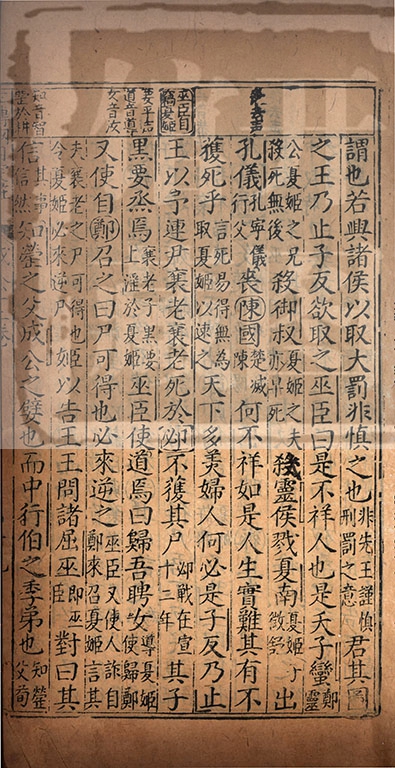 謂也若興諸侯以取大罰非慎之也非先王謹慎刑罰之意君其圖
之王乃止子反欲取之巫臣曰是不祥人也是夭子蠻鄭靈
公夏姬之兄殺死無後殺御叔夏姬之夫亦早死殺靈侯戮夏南夏姬子徵舒出
孔儀孔寧儀行父喪陳國楚滅陳何不祥如是人生實難其有不
獲死乎言死易得無為取夏姬以速之天下多美婦人何必是子反乃止
王以予連尹襄老襄老死於邲不獲其尸邲戰在宣十二年其子
巫臣自竊夏姬
黑要烝焉襄老子黑要上淫於夏姬巫臣使道焉曰歸吾聘女導夏姬使歸鄭
要平声道音導女音汝
又使自鄭召之曰尸可得也必來逆之巫臣又使人詐自鄭來召夏姬言其
夫襄老之尸可得也令夏姬必來逆尸姬以告王王問諸屈巫即巫臣對曰其
信其事信然知罃之父成公之嬖也而中行伯之季弟也知罃父荀
知音智罃於耕